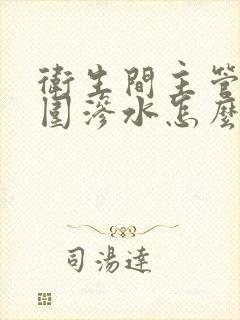 衛生間主管
圍滲水怎麼
司湯達